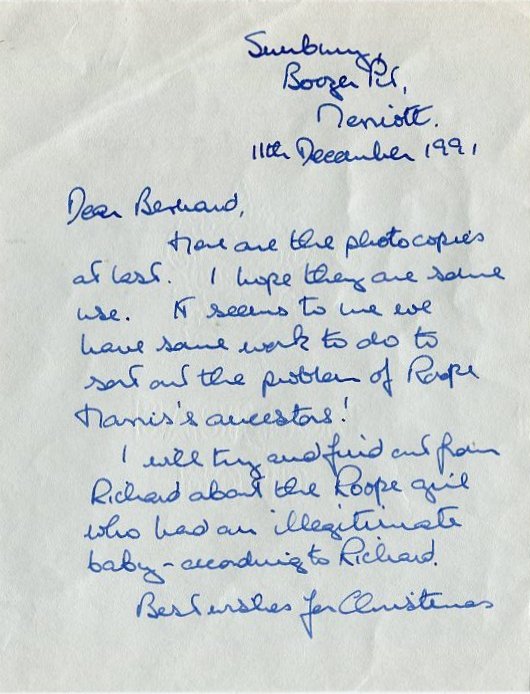 Sunbury,
Boozer Pit,
Merriott.
11th December 1991
Dear Bernard,
Here are the photocopies
at last. I hope they are some
use. It seems to me we
have some work to do to
sort out the problem of Roope
Harris's ancestors!
I will try and find out from
Richard about the Roope girl
who had an illegitimate
baby - according to Richard.
Best wishes for Christmas